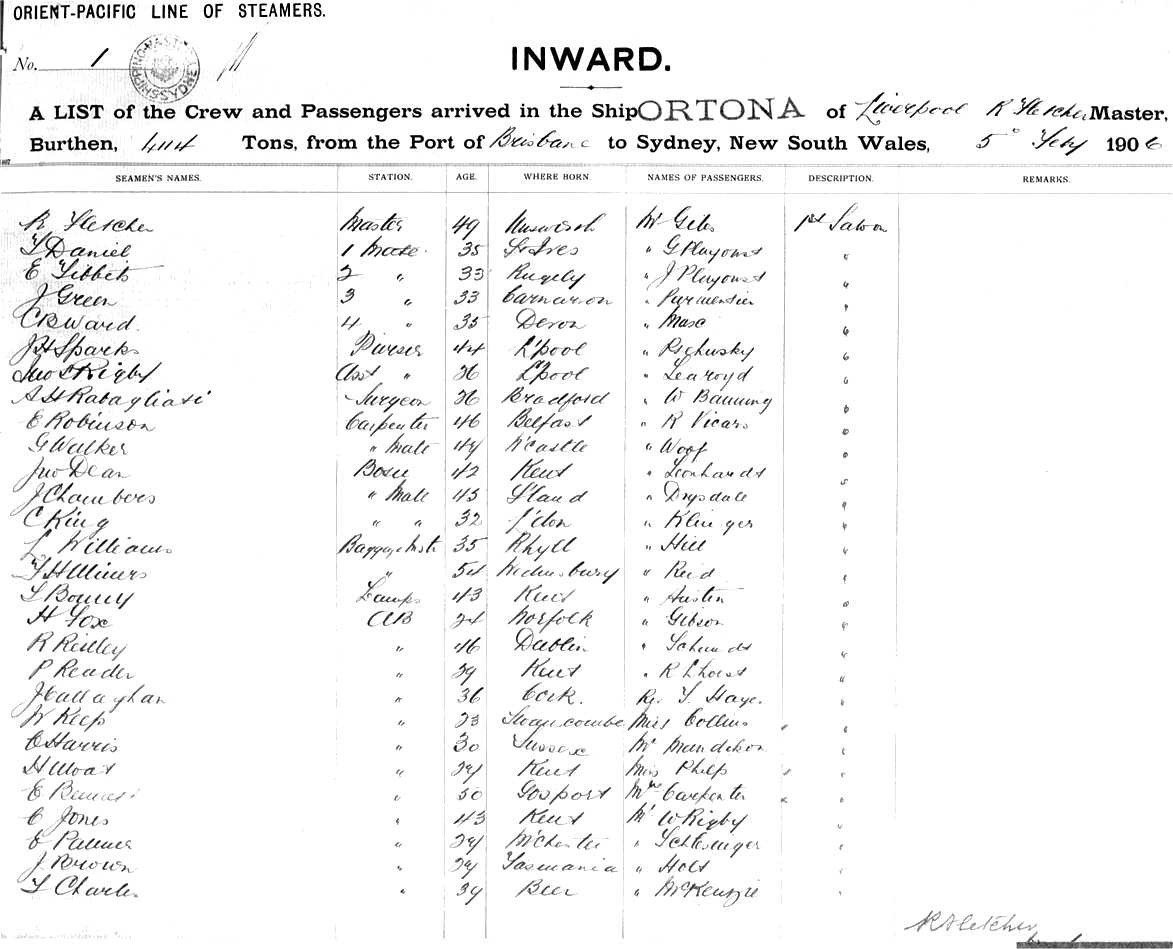 ORIENT-PACIFIC LINE OF STEAMERS.
No. 1
SHIPPING MASTER SYDNEY
INWARD.
A LIST of the Crew and Passengers arrived in the Ship ORTONA of Liverpool R Fletcher Master,
Burthen, 4114 Tons, from the Port of Brisbane to Sydney, New South Wales, 5° Feby 1906
SEAMEN'S NAMES. STATION. AGE. WHERE BORN. NAMES OF PASSENGERS. DESCRIPTION. REMARKS.
R Fletcher Master 49 Mr Giles 1st Saloon
T Daniel 1 Mate 35 St Ives " G Playoust "
E Tibbets 2 " 33 Rugely " J Playoust "
J Green 3 " 33 Carnarvon " Parmentier "
C B Ward. 4 " 35 Devon " Masc "
J H Sparks Purser 44 L'pool "
Jno S Rigby Asst " 26 L'pool " Learoyd "
A H Rabagliati Surgeon 26 Bradford " W Banning "
E Robinson Carpenter 46 Belfast " R Vicars "
G Walker " Mate 44 N'castle " Woof "
Jno Dean Bosn 42 Kent " Leonhardt "
J Chambers " Mate 43 S'land " Drysdale "
C King " " 32 L'don " Klinger "
L Williams Baggage Mstr 35 Rhyll " Hill "
T H Miners " 54 Wednesbury " Reid "
T Bonny Lamps 43 Kent " Austin "
H Fox AB 24 Norfolk " Gibson "
R Reilley " 46 Dublin " Schmidt "
P Reader " 29 Kent " R Lhoest "
J Callaghan " 36 Cork. Rev T Hayes "
W Keep " 23 Swanscombe Miss Collins " "
C Harris " 30 Sussex Mr "
H Moat " 24 Kent Miss Philp " "
E Bennett " 50 Gosport Mrs Carpenter " "
C Jones " 43 Kent Mr W Rigby "
E Palmer " 24 M'chester " Schlesinger "
J Brown " 24 Tasmania " Holt "
T Charles " 39 Beer " McKenzie "
R Fletcher